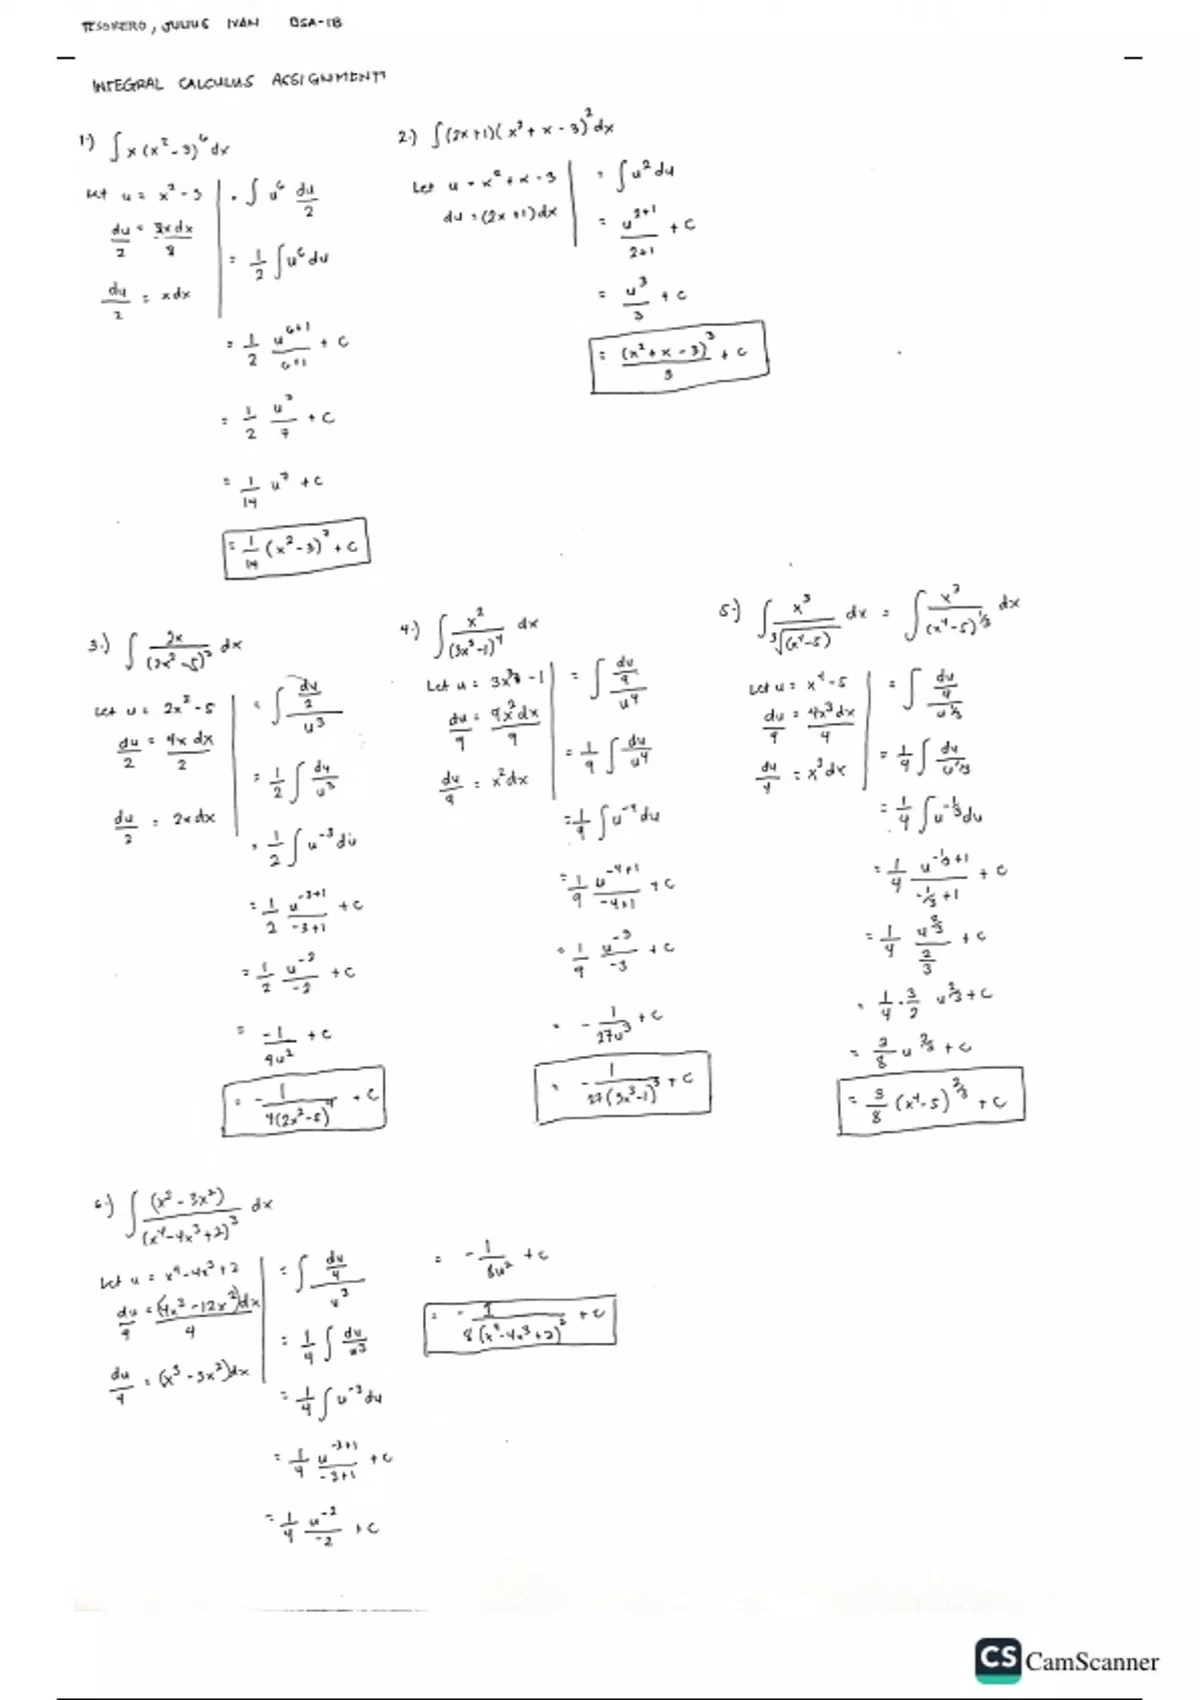 TESORERO, JULIUS IVAN BSA-1B
INTEGRAL CALCULUS ASSIGNMENT
1.) ∫ x(x² - 3)⁶ dx
Let u = x² - 3
du/2 = 2x dx/2
du/2 = x dx
= ∫ u⁶ du/2
= 1/2 ∫ u⁶ du
= 1/2 u⁶⁺¹/6+1 + C
= 1/2 u⁷/7 + C
= 1/14 u⁷ + C
= 1/14 (x² - 3)⁷ + C
2.) ∫ (2x + 1)(x² + x - 3)² dx
Let u = x² + x - 3
du = (2x + 1) dx
= ∫ u² du
= u²⁺¹/2+1 + C
= u³/3 + C
= (x² + x - 3)³/3 + C
3.) ∫ 2x/(2x² - 5)³ dx
Let u = 2x² - 5
du/2 = 4x dx/2
du/2 = 2x dx
= ∫ du/2/u³
= 1/2 ∫ du/u³
= 1/2 ∫ u⁻³ du
= 1/2 u⁻³⁺¹/-3+1 + C
= 1/2 u⁻²/-2 + C
= -1/4u² + C
= - 1/4(2x² - 5) + C
4.) ∫ x²/(3x³ - 1)⁴ dx
Let u = 3x³ - 1
du/9 = 9x² dx/9
du/9 = x² dx
= ∫ du/9/u⁴
= 1/9 ∫ du/u⁴
= 1/9 ∫ u⁻⁴ du
= 1/9 u⁻⁴⁺¹/-4+1 + C
= 1/9 u⁻³/-3 + C
= - 1/27u³ + C
= - 1/27(3x³ - 1)³ + C
5.) ∫ x³/∛(x⁴ - 5) dx = ∫ x³/(x⁴ - 5)^1/3 dx
Let u = x⁴ - 5
du/4 = 4x³ dx/4
du/4 = x³ dx
= ∫ du/4/u^1/3
= 1/4 ∫ du/u^1/3
= 1/4 ∫ u^-1/3 du
= 1/4 u^-1/3+1/-1/3+1 + C
= 1/4 u^2/3/2/3 + C
= 1/4 · 3/2 u^2/3 + C
= 3/8 u^2/3 + C
= 3/8 (x⁴ - 5)^2/3 + C
6.) ∫ (x³ - 3x²)/(x⁴ - 4x³ + 2)³ dx
Let u = x⁴ - 4x³ + 2
du/4 = (4x³ - 12x²)dx/4
du/4 = (x³ - 3x²)dx
= ∫ du/4/u³
= 1/4 ∫ du/u³
= 1/4 ∫ u⁻³ du
= 1/4 u⁻³⁺¹/-3+1 + C
= 1/4 u⁻²/-2 + C
= - 1/8u² + C
= - 1/8(x⁴ - 4x³ + 2)² + C
CS CamScanner